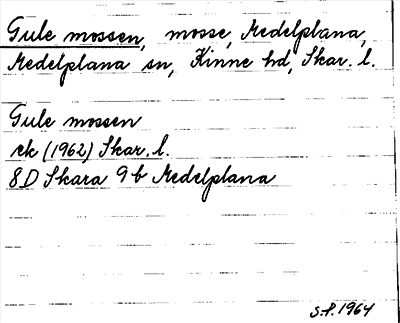 Gule mossen, mosse, Medelplana,
Medelplana sn, Kinne hd, Skar. l.
Gule mossen
ek (1962) Skar. l.
8D Skara 9b Medelplana
S.P. 1964